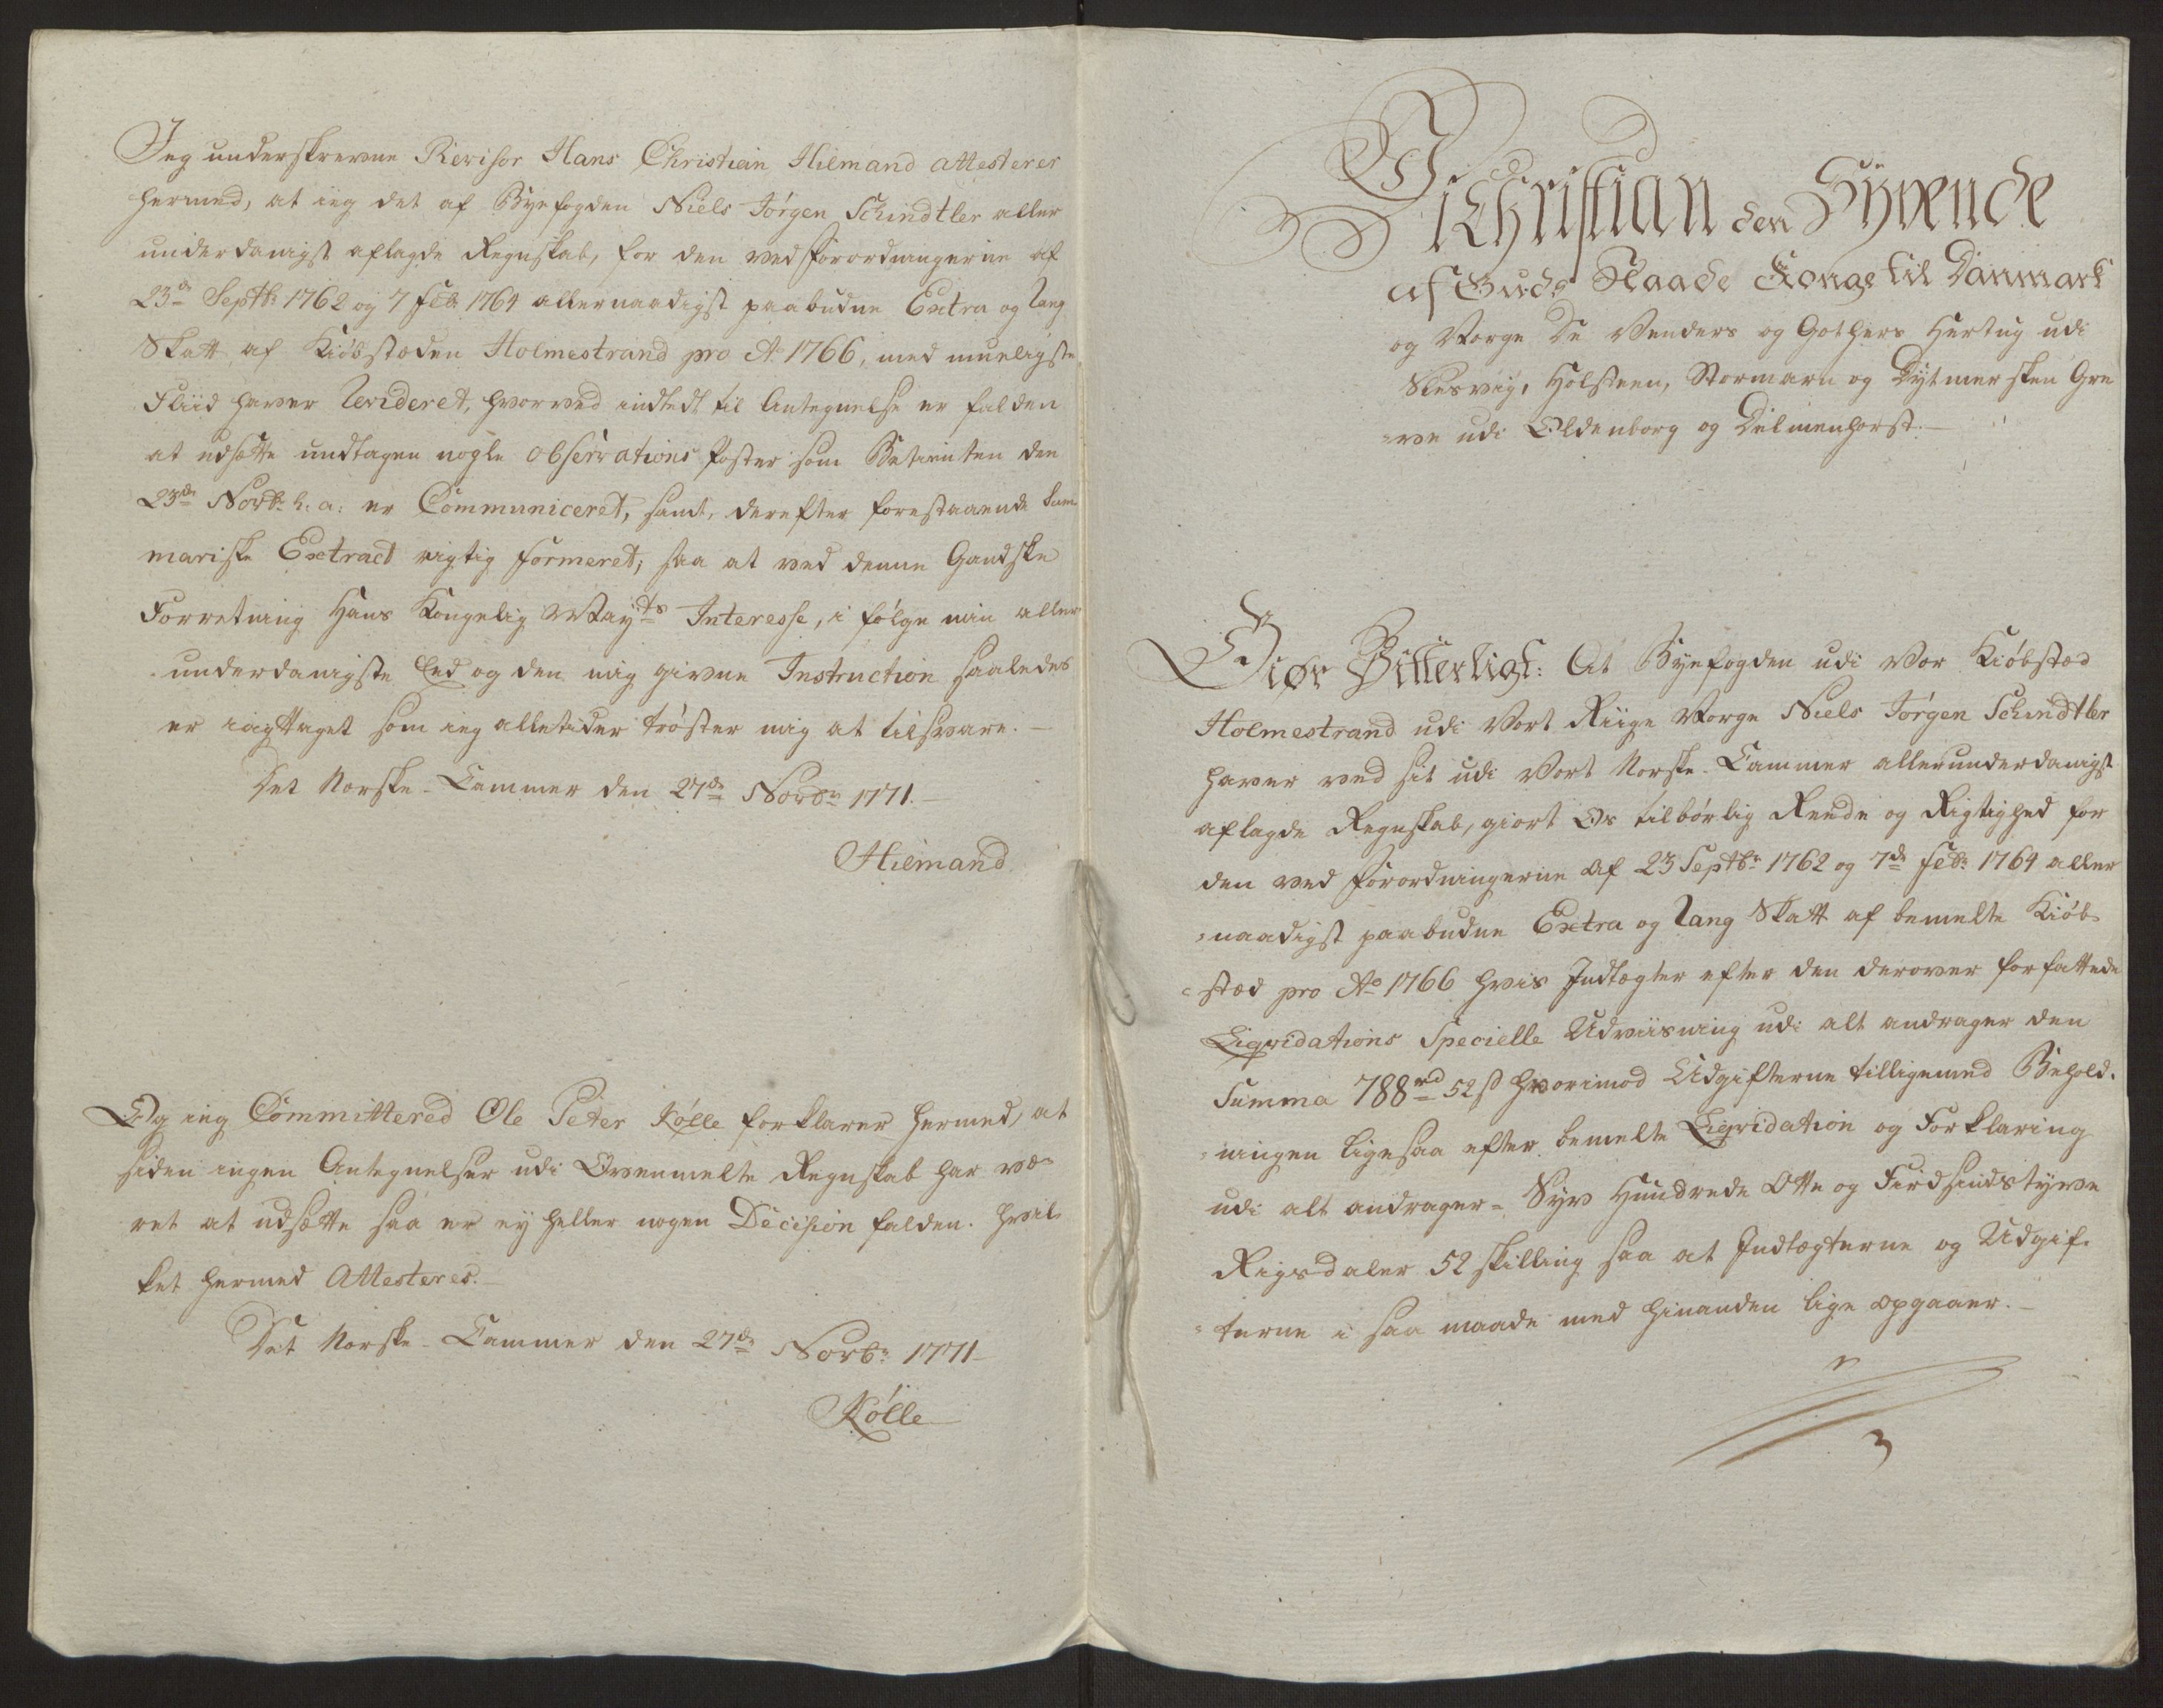 Jeg underskrevne Revisor Hans Christian Hilmand attesterer
hermed, at ieg det af Byefogden Niels Jørgen Schindtler aller
underdanigst aflagde Regnskab, for den ved Forordningerne af
23de Septbr 1762 og 7 Febr 1764 allernaadigst paabudne Extra og Rang
Skatt af Kiøbstæden Holmestrand pro Ao 1766, med mueligste
Fliid haver Revideret, hvorved indtedt til Antegnelse er falden
at udsætte undtagen nogle observations Poster som Betienten den
23de Novbr h: a: er Communiceret, samt, derefter forestaaende Sum
mariske Extract rigtig formeret, saa at ved denne Gandske
Forretning Hans Kongelig Mayts Interesse, i følge min aller
underdanigste Eed og den mig givne Instruction saaledes
er iagttaget som ieg alletider trøster mig at tilsvare. —
Det Norske Cammer den 27de Novbr 1771. —
Hilmand
Og ieg Committered Ole Peter Kølle forklarer hermed, at
siden ingen Antegnelser udi Ovenmelte Regnskab har væ-
ret at udsætte saa er ey heller nogen Decision falden. hvil
ket hermed Attesteres. —
Det Norske Cammer den 27de Novbr 1771 —
Kølle
Vi Christian den Syvende
af Guds Naade Konge til Danmark
og Norge De Venders og Gothers Hertug udi
Slesvig, Holsteen, Stormarn og Dytmersken Gre
-ve udi Oldenborg og Delmenhorst. —
Giør Vitterligt: At Byefogden udi Vor Kiøbstæd
Holmestrand udi Vort Riige Norge Niels Jørgen Schindtler
haver ved sit udi Vort Norske Cammer allerunderdanigst
aflagde Regnskab, giort Os tilbørlig Reede og Rigtighed for
den ved Forordningerne af 23 Septbr 1762 og 7de Febr 1764 aller
-naadigst paabudne Extra og Rang Skatt af bemelte Kiøb-
stæd pro Ao 1766 hvis Indtægter efter den derover forfattede
Liqvidations Specielle Udviisning udi alt andrager den
Summa 788rd 52 s hvorimod Udgifterne tilligemed Behold-
-ningen ligesaa efter bemelte Liqvidation og Forklaring
udi alt andrager - Syv Hundrede Otte og Fiirdsindstyve
Rigsdaler 52 skilling saa at Indtægterne og Udgif-
-terne i saa maade med hinanden lige opgaaer. —